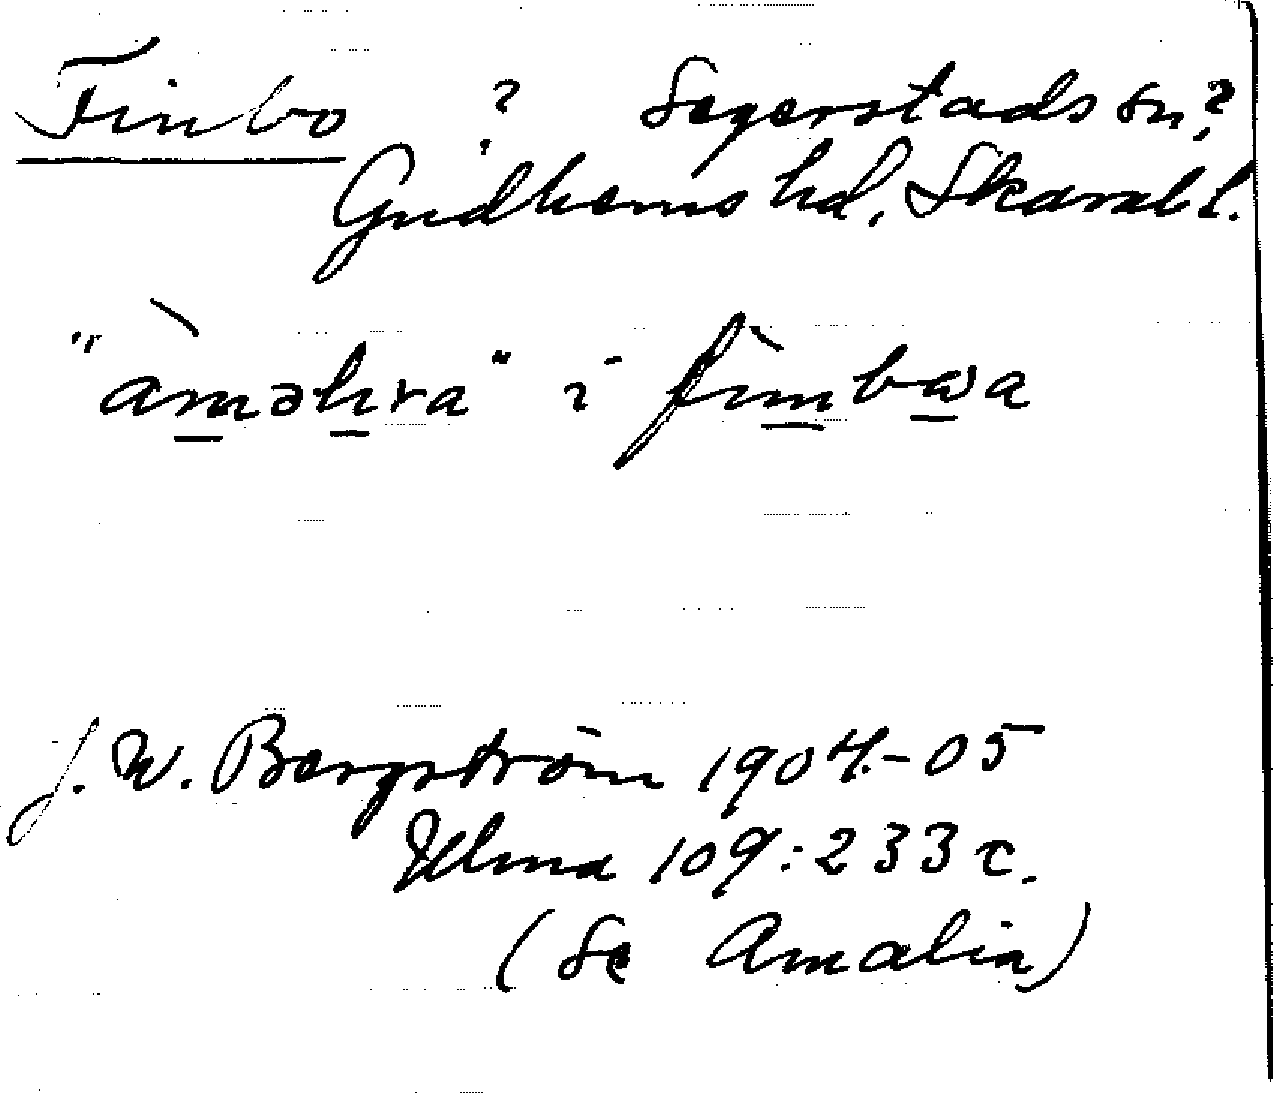 Finbo ? Segerstads sn?
Gudhems hd, Skarabl.
"àməlıra" i fìmbωa
J. W. Bergström 1904.-05
Ulma 109:233 c.
(Se Amalia)